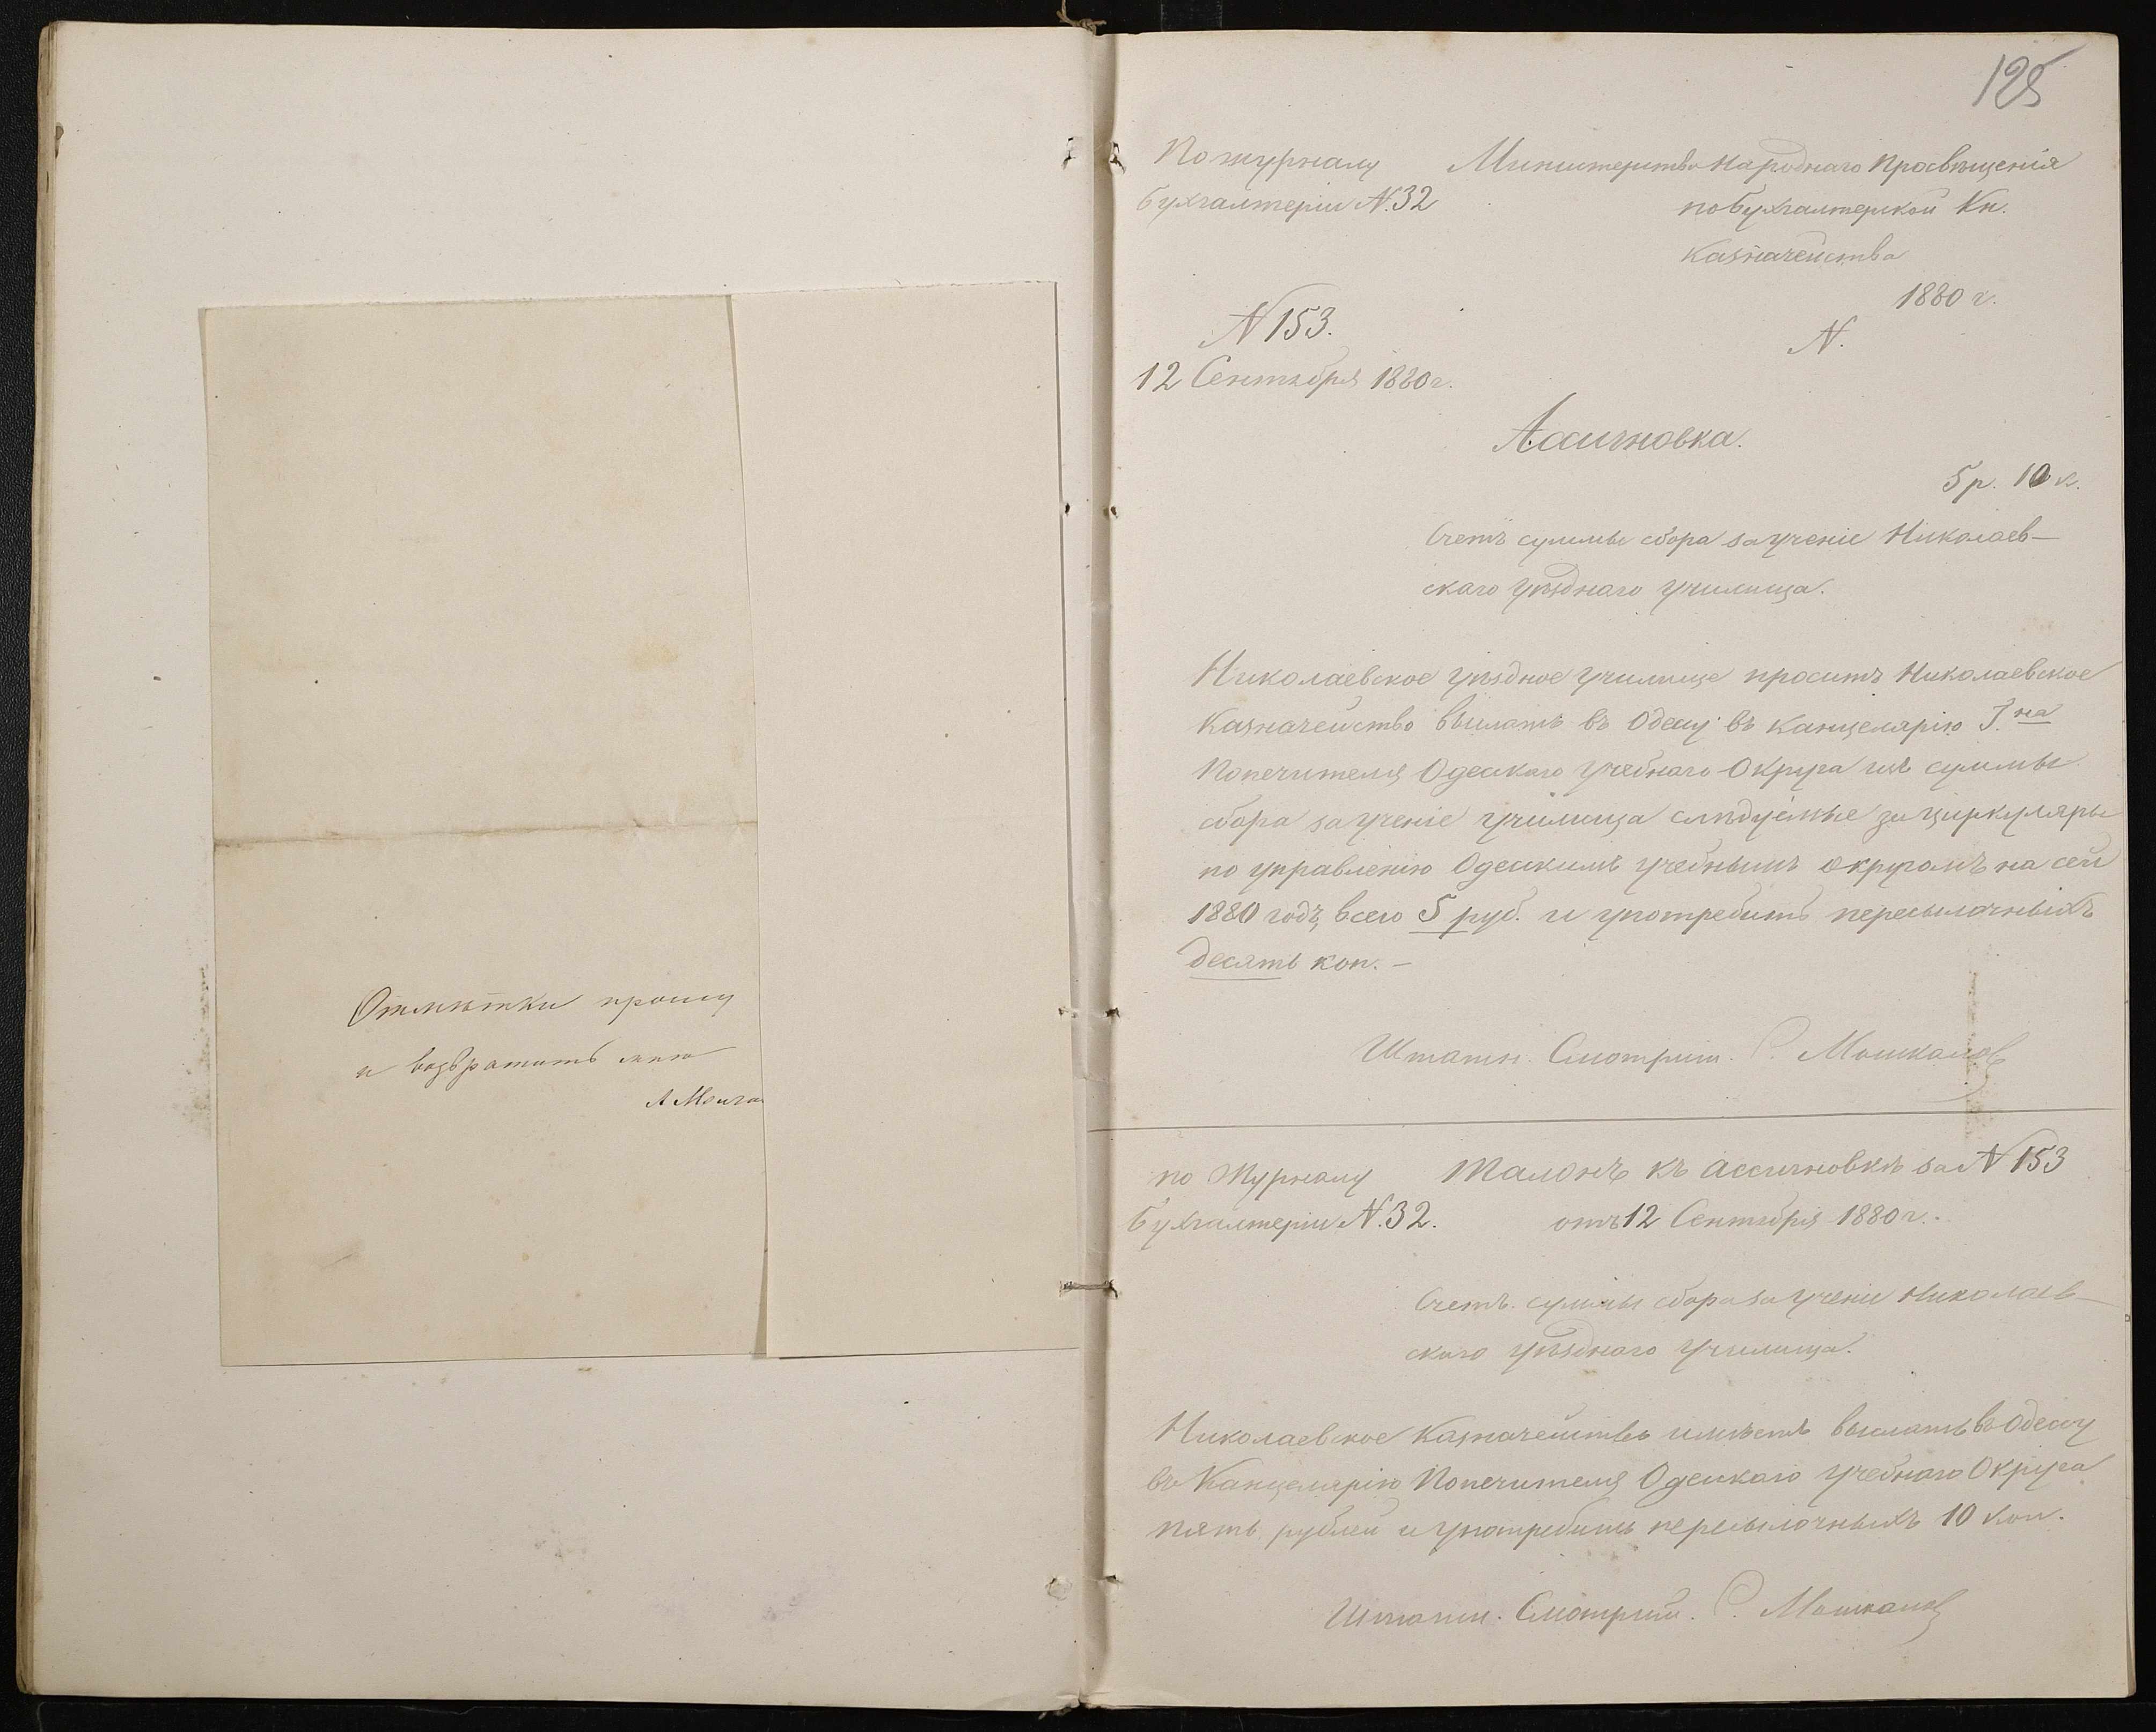 Отмѣтки прошу
и возвратить мнѣ
125
По журналу
бухгалтеріи N.32
Министерство Народнаго Просвѣщенія
по бухгалтерской Кн.
Казначейства
1880 г.
N.
N 153.
12 Сентября 1880 г.
Ассигновка.
5 р. 10 к.
Счетъ суммы сбора за ученіе Николаев-
скаго уѣзднаго училища.
Николаевское уѣздное училище проситъ Николаевское
Казначейство выслать въ Одессу въ Канцелярію Г.на
Попечителя Одесскаго учебнаго Округа изъ суммы
сбора за ученіе училища слѣдуемые за циркуляры
по управленію Одесскимъ учебнымъ округомъ на сей
1880 годъ, всего 5 руб. и употребить пересылочныхъ
десять коп. –
Штатн. Смотрит. Мошкалов
по Журналу
бухгалтеріи N.32.
Талонъ къ ассигновкѣ за N 153
отъ 12 Сентября 1880 г.
Счетъ суммы сбора за ученіе Николаев-
скаго уѣзднаго училища.
Николаевское Казначейство имѣетъ выслать въ Одессу
въ Канцелярію Попечителя Одесскаго учебнаго Округа
пять рублей и употребить пересылочныхъ 10 коп.
Штатн. Смотрит. Мошкалов